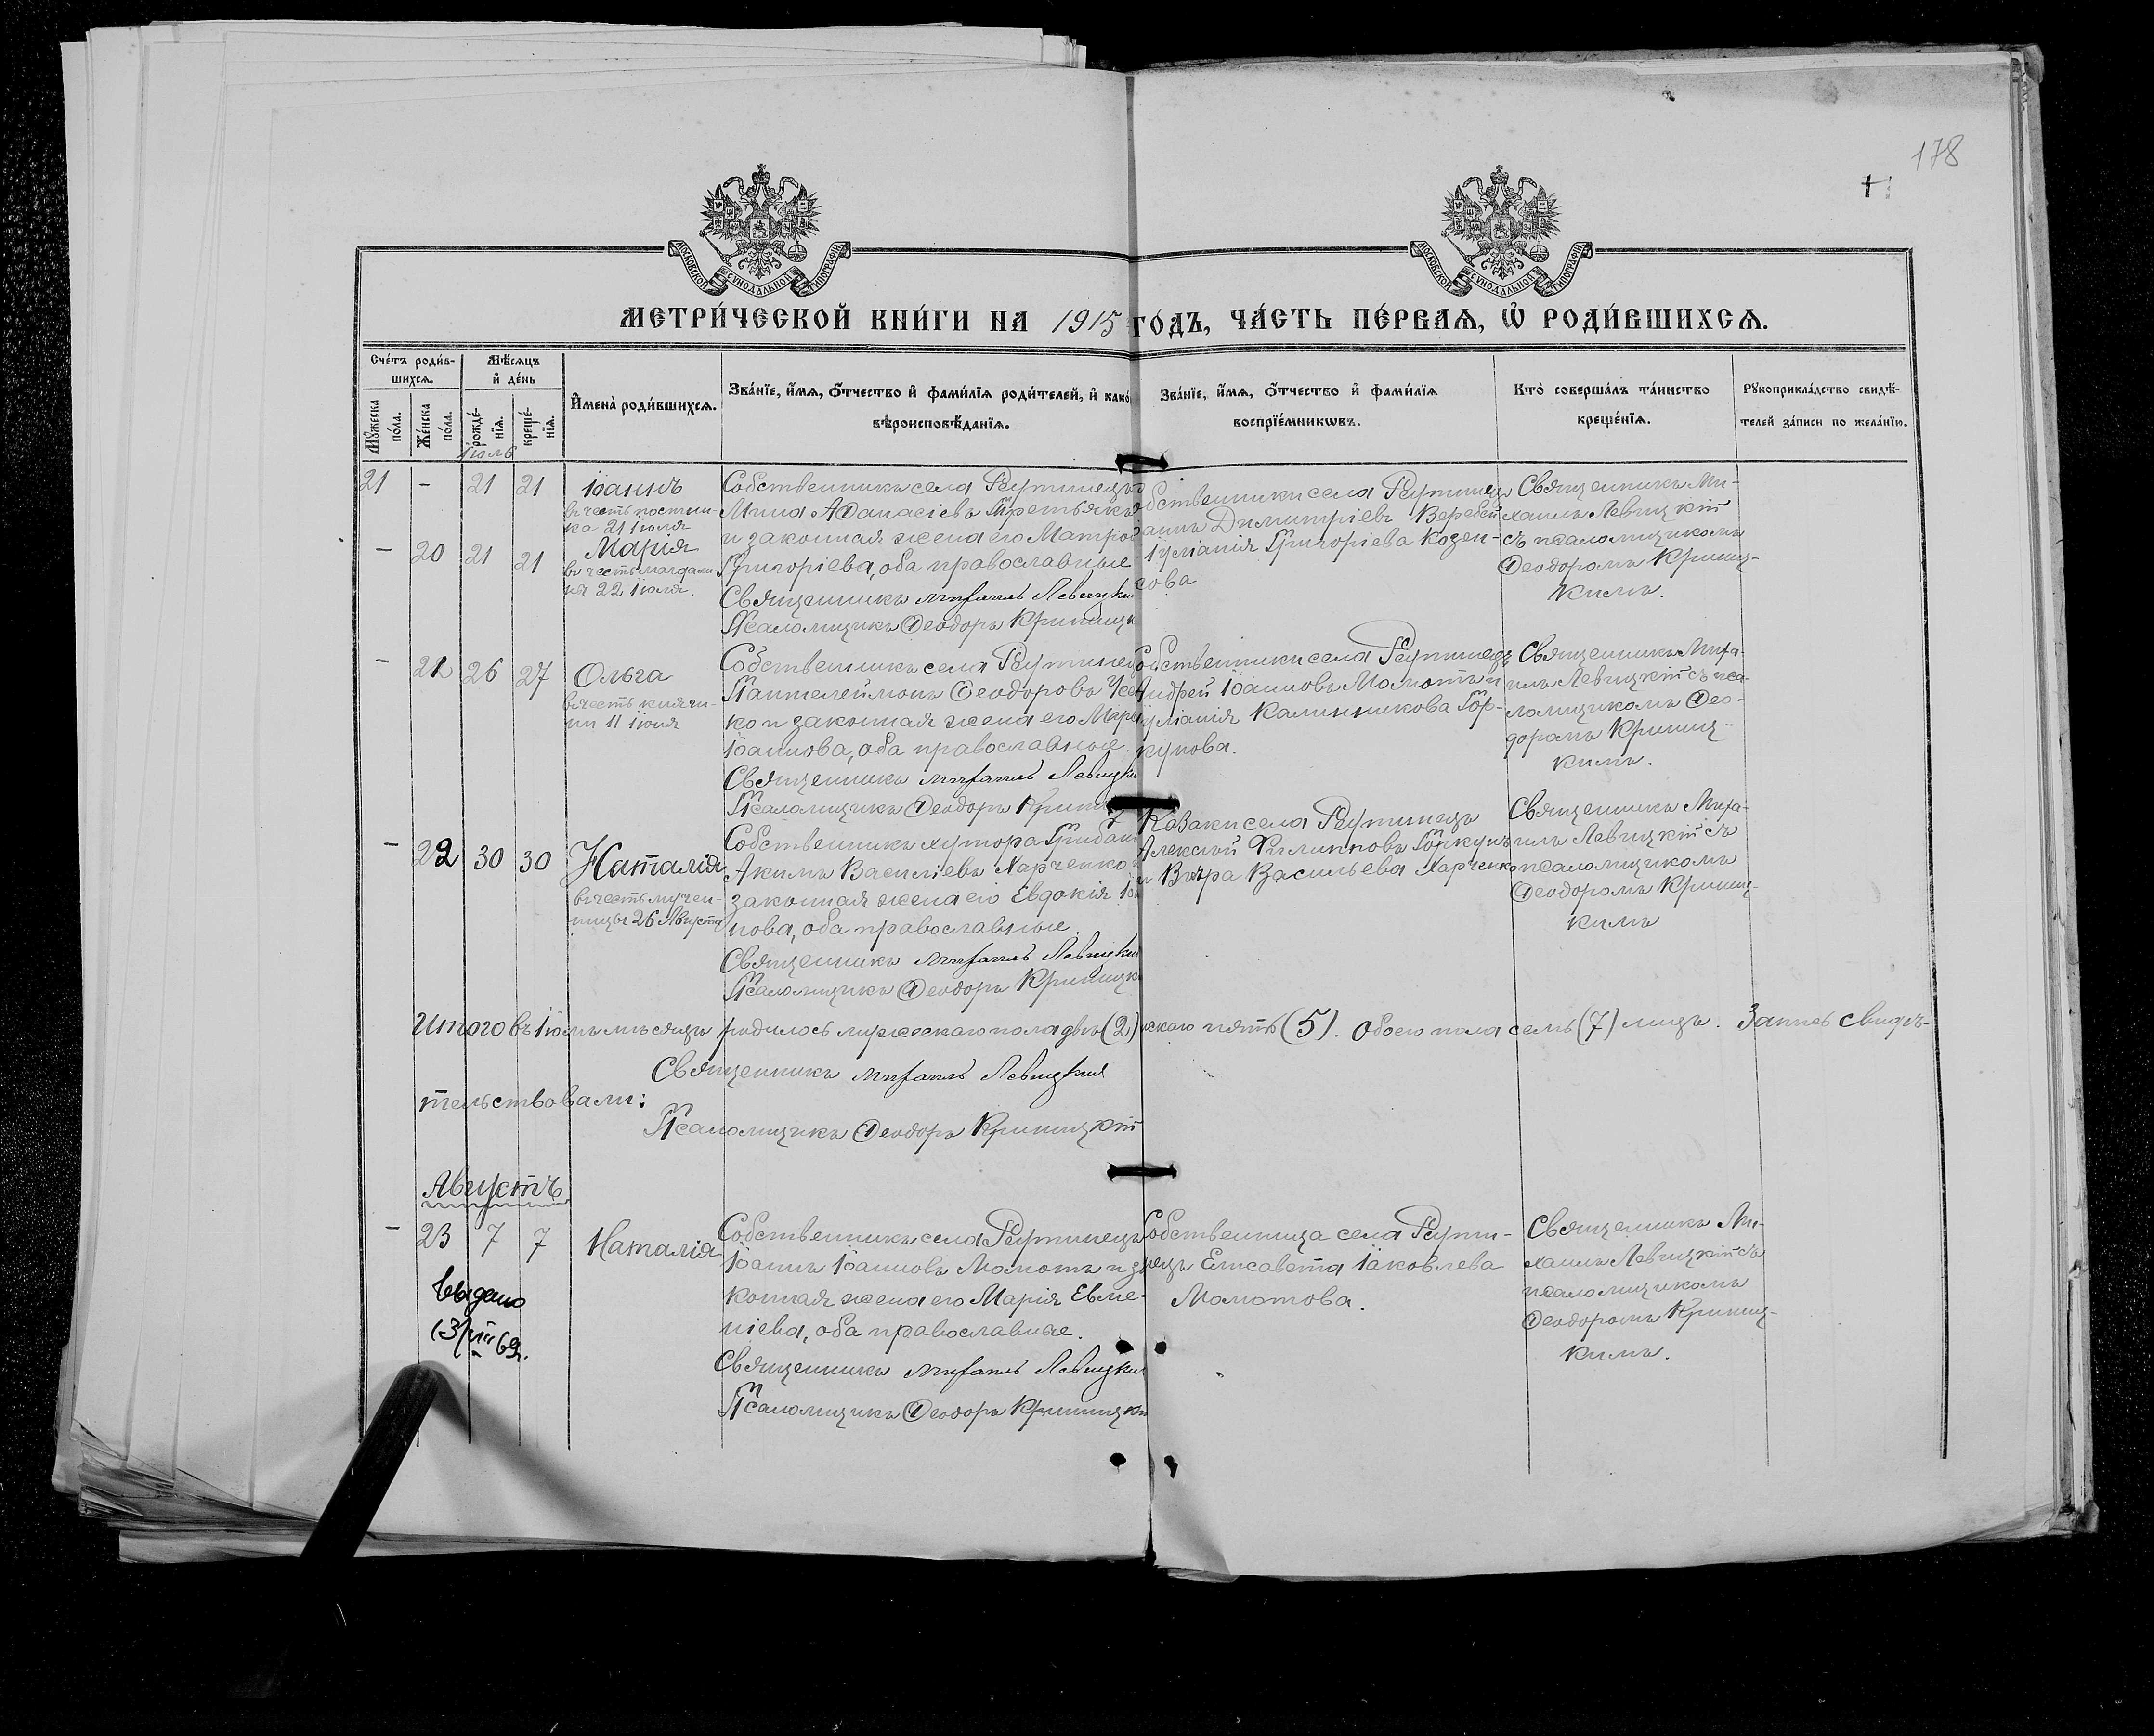 178
МОСКОВСКОЙ СѴНОДАЛЬНОЙ ТИПОГРАФІИ
МОСКОВСКОЙ СѴНОДАЛЬНОЙ ТИПОГРАФІИ
МЕТРИ́ЧЕСКОЙ КНИ́ГИ НА 1915 ГО́ДЪ, ЧА́СТЬ ПЕ́РВАѦ, Ѡ҆ РОДИ́ВШИХСѦ.
Сче́тъ роди́в-
шихсѧ.
Мꙋ́жеска по́ла.
Же́нска по́ла.
Мѣ́сѧцъ
и҆ де́нь
рожде́-
нїѧ.
креще́-
нїѧ.
И҆мена̀ роди́вшихсѧ.
Зва́нїе, и҆́мѧ, ѻ҆́тчество и҆ фами́лїѧ роди́телей, и҆ како́
вѣроисповѣ́данїѧ.
Зва́нїе, и҆́мѧ, ѻ҆́тчество и҆ фами́лїѧ
воспрїе́мникѡвъ.
Кто̀ соверша́лъ та́инство
креще́нїѧ.
Рꙋкоприкла́дство свидѣ́-
телей за́писи по жела́нїю.
Іюль
21 - 21 21 Іоаннъ
въ честь постни-
ка 21 Іюля
- 20 21 21 Марія
въ честь магдали-
ны 22 Іюля.
Собственникъ села Реутинецъ
Мина Аѳанасіевъ Третьяко
и законная жена его Матрон
Григоріева, оба православные
Священникъ Михаилъ Левицкій
Псаломщикъ Ѳеодоръ Криницк
бственники села Реутинецъ
Димитріевъ Веребей
Іуліанія Григоріева Козен-
кова
Священникъ Ми-
хаилъ Левицкій
съ псаломщикомъ
Ѳеодоромъ Криниц-
кимъ.
- 21 26 27 Ольга
въ честь княги-
ни 11 Іюля
Собственникъ села Реутинец
Пантелеймонъ Ѳеодоровъ
ко и законная жена его Марі
Іоаннова, оба православные.
Священникъ Михаилъ Левицкі
Псаломщикъ Ѳеодоръ
обственники села Реутинецъ
Андрей Іоанновъ Момотъ и
Іуліанія Калинникова Гор-
кунова.
Священникъ Миха-
илъ Левицкій съ пса-
ломщикомъ Ѳео-
доромъ Криниц-
кимъ.
- 22 30 30 Наталія
въ честь мучен-
ницы 26 Августа
Собственникъ хутора Грибан
Акимъ Василіевъ Харченко
законная жена его Евдокія Іоа
нова, оба православные.
Священникъ Михаилъ Левицкій
Псаломщикъ Ѳеодоръ Криницк
Казаки села Реутинецъ
Алексѣй Филипповъ Горкунъ
и Вѣра Васильева Харченко
Священникъ Миха-
илъ Левицкій съ
псаломщикомъ
Ѳеодоромъ Криниц-
кимъ
Итого въ Іюлѣ мѣсяцѣ родилось мужескаго пола два (2) нскаго пять (5). Обоего пола семь (7) лицъ. Запись свидѣ-
тельствовали:
Священникъ Михаилъ Левицкій
Псаломщикъ Ѳеодоръ Криницкій
Августъ
- 23 7 7 Наталія
Выдано
Собственникъ села Реутинецъ
Іоаннъ Іоанновъ Момотъ и за
конная жена его Марія Евме-
ніева, оба православные.
Священникъ Михаилъ Левицкій
Псаломщикъ Ѳеодоръ Криницкі
Собственница села Реути-
нецъ Елисавета Іаковлева
Момотова.
Священникъ Ми-
хаилъ Левицкій съ
псаломщикомъ
Ѳеодоромъ Криниц-
кимъ.